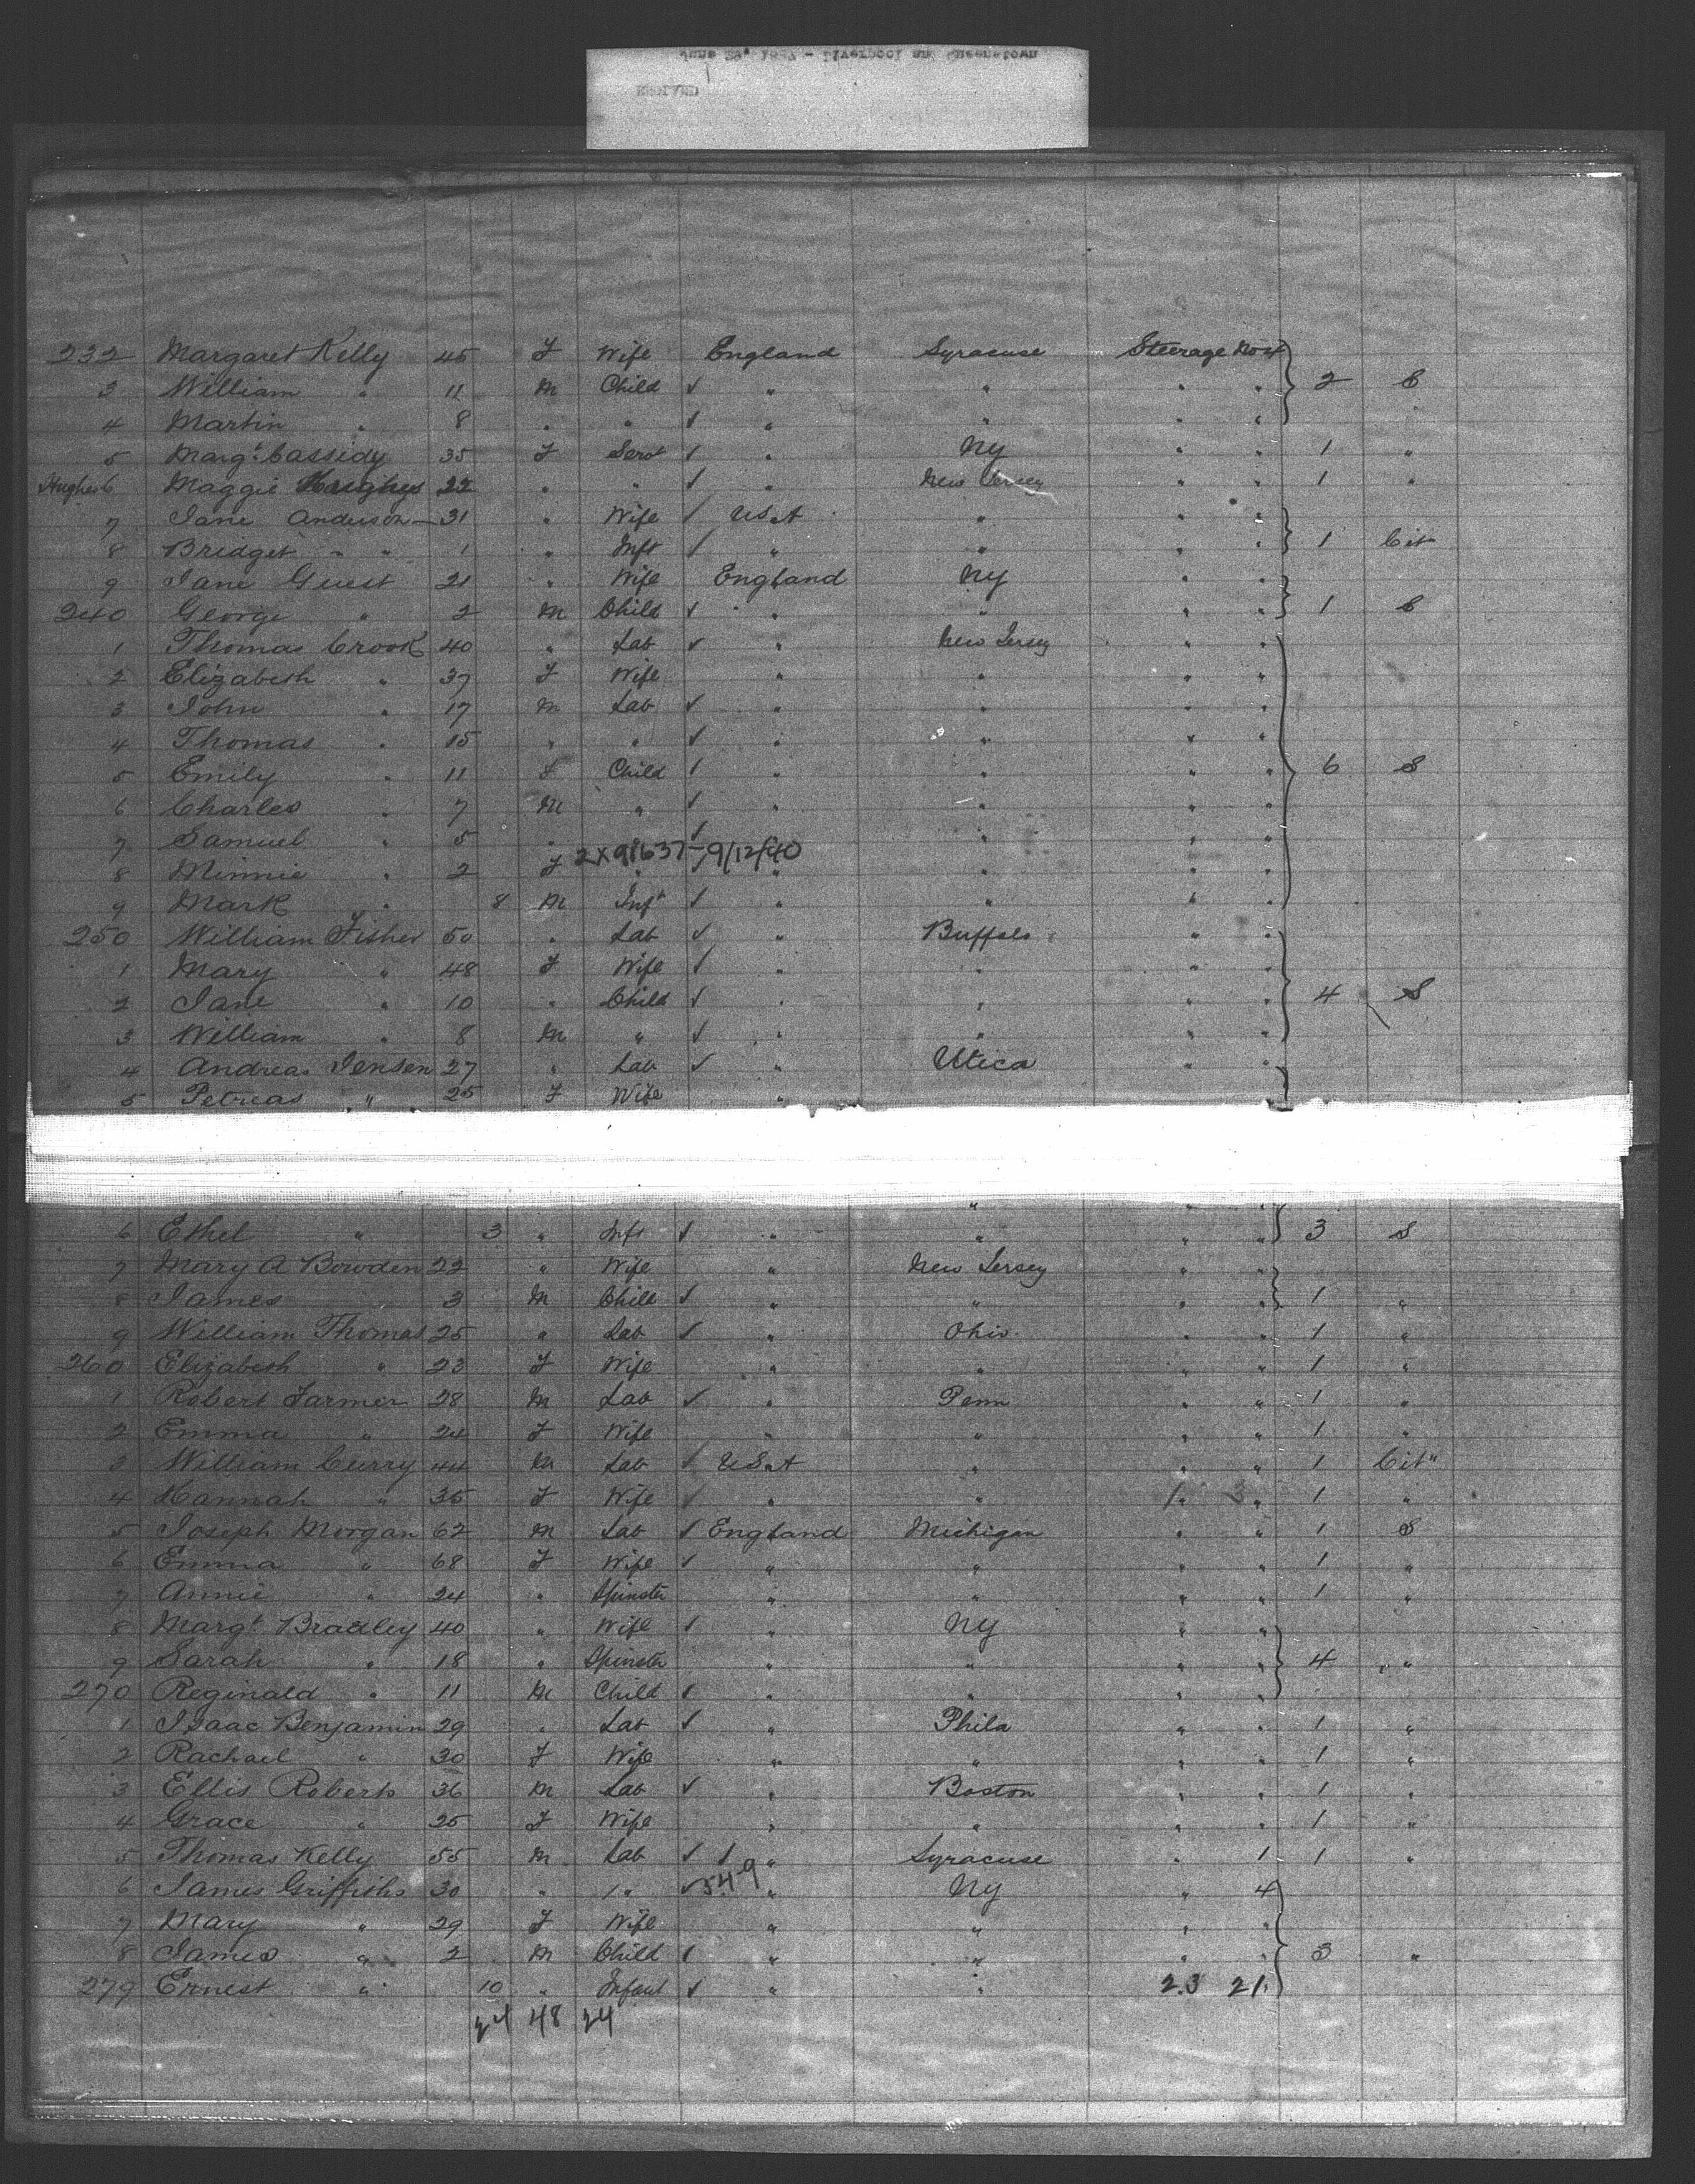 232 Margaret Kelly 45 F Wife England Syracuse Steerage No 4
3 William " 11 M Child ✓ " " " " 2 C
4 Martin " 8 " " ✓ " " " " "
5 Margt Cassidy 35 F Servt ✓ " NY " " 1 "
Hughes 6 Maggie Hughes 22 " " ✓ " New Jersey " " 1 "
7 Jane Anderson 31 " Wife ✓ USA " " "
8 Bridget " " 1 " Inft ✓ " " " " 1 Cit
9 Jane Guest 21 " Wife England NY " "
240 George " 2 M Child ✓ " " " " 1 C
1 Thomas Crook 40 " Lab ✓ " New Jersey " "
2 Elizabeth " 37 F Wife " " " "
3 John " 17 M Lab ✓ " " " "
4 Thomas " 15 " " ✓ " " " "
5 Emily " 11 F Child ✓ " " " " 6 S
6 Charles " 7 M " ✓ " " " "
7 Samuel " 5 " ✓ " " "
2X91637-9/12/40
8 Minnie " 2 F " " " " "
9 Mark " 8 M Inft ✓ " " " "
250 William Fisher 50 " Lab ✓ " Buffalo " "
1 Mary " 48 F Wife ✓ " " " "
2 Jane " 10 " Child ✓ " " " " 4 S
3 William " 8 M " ✓ " " " "
4 Andreas Jensen 27 " Lab ✓ " Utica " "
5 Petreas " 25 F Wife "
6 Ethel " 3 " Inft ✓ " " " " 3 S
7 Mary A Bowden 22 " Wife " New Jersey " "
8 James " 3 M Child ✓ " " " " 1 "
9 William Thomas 25 " Lab ✓ " Ohio " " 1 "
260 Elizabeth " 23 F Wife " " " " 1 "
1 Robert Farmer 28 M Lab ✓ " Penn " " 1 "
2 Emma " 24 F Wife " " " " 1 "
3 William Curry 44 M Lab ✓ USA " " " 1 Cit"
4 Hannah " 35 F Wife ✓ " " " " 1 "
5 Joseph Morgan 62 M Lab ✓ England Michigan " " 1 S
6 Emma " 68 F Wife ✓ " " " " 1 "
7 Annie " 24 " Spinster " " " " 1 "
8 Margt Bradley 40 " Wife ✓ " NY " "
9 Sarah " 18 " Spinster " " " " 4 "
270 Reginald " 11 M Child ✓ " " " "
1 Isaac Benjamin 29 " Lab ✓ " Phila " " 1 "
2 Rachael " 30 F Wife " " " " 1 "
3 Ellis Roberts 36 M Lab ✓ " Boston " " 1 "
4 Grace " 25 F Wife " " " " 1 "
5 Thomas Kelly 55 M Lab ✓ " Syracuse " 1 1 "
6 James Griffiths 30 " " ✓ 549 " NY " 4
7 Mary " 29 F Wife " " " "
8 James " 2 M Child ✓ " " " " 3 "
279 Ernest " 10 " Infant ✓ " " 23 21
24 48 24